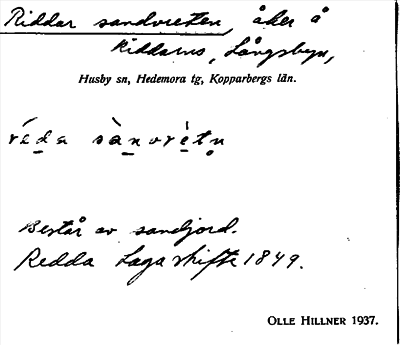 Riddar sandvreten, åker å
Riddarns, Långsbyn,
Husby sn, Hedemora tg, Kopparbergs län.
réda sànvrètn
Består av sandjord.
Redda Laga skifte 1849.
OLLE HILLNER 1937.